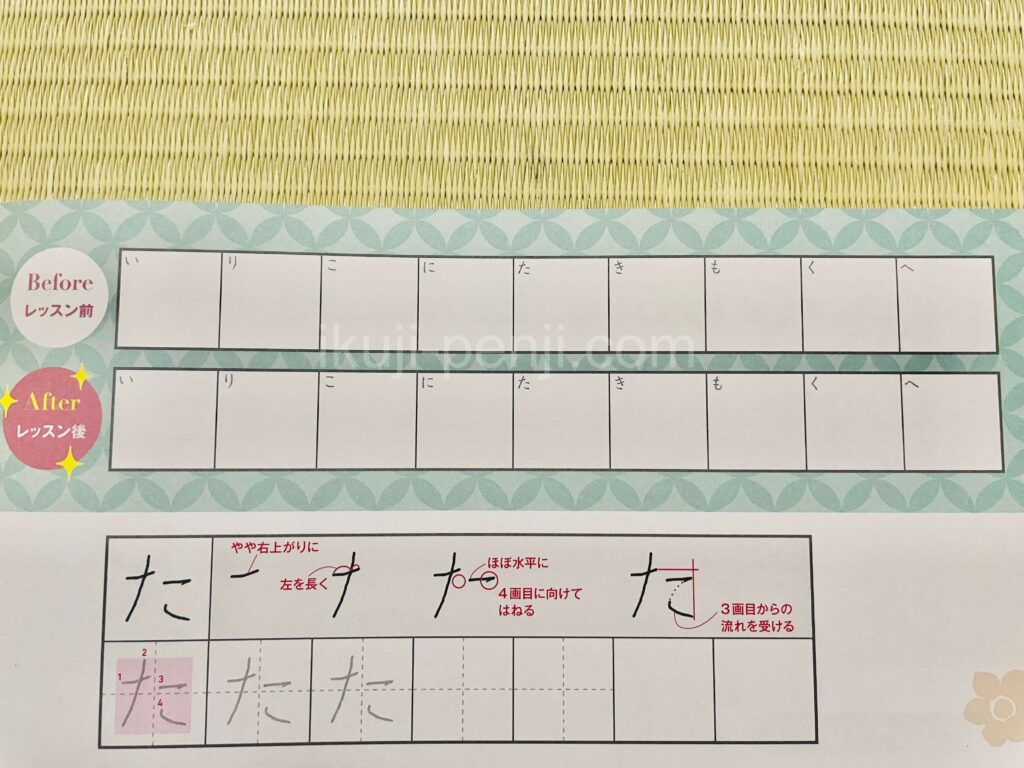 Before
レッスン前
い り こ に た き も く へ
ikuji-penji.com
After
レッスン後
い り こ に た き も く へ
た
やや右上がりに
左を長く
ナ
ほぼ水平に
4画目に向けて
はねる
た
3画目からの
流れを受ける
1 2 3 4
た た た